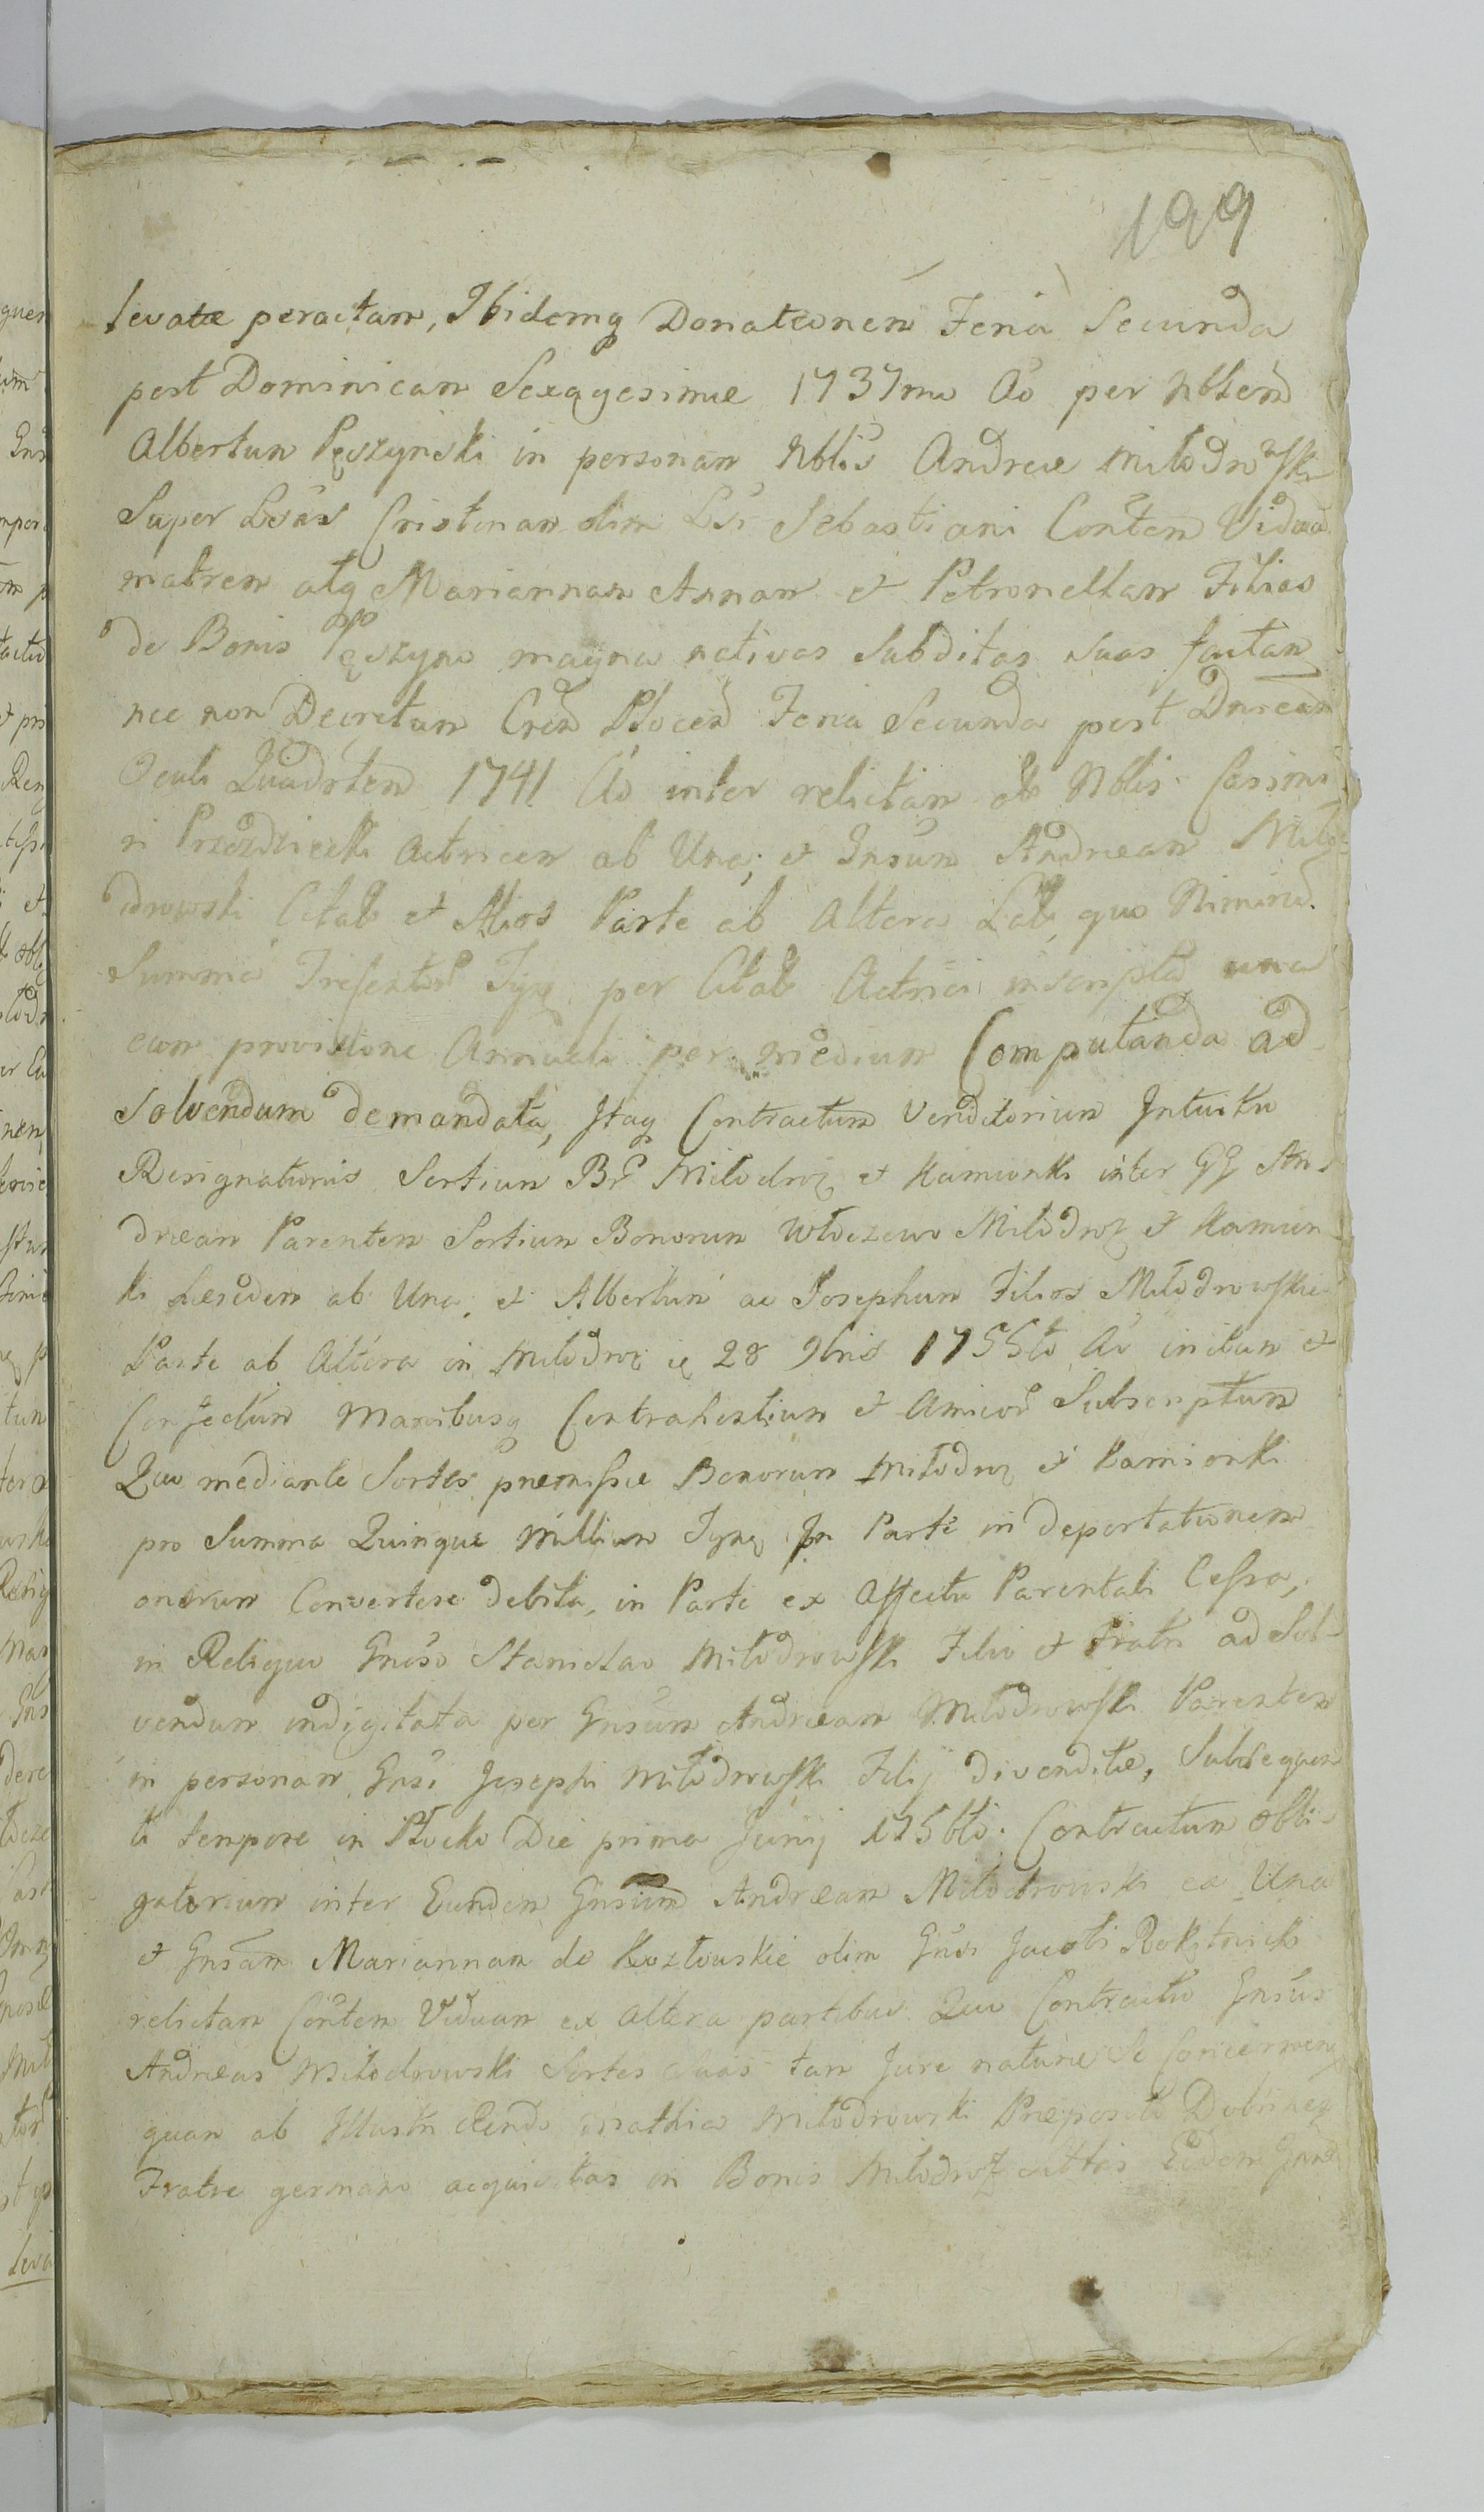 199
levatæ peractam, Ibidemq Donationem Feria Secunda
post Dominicam Sexagesimæ 1737mo Ao per Nblem
Albertum Pęszynski in personam Nblis Andreæ Miłodrowski
Super Lbas Cristinam olim Lbi Sebastiani Contem Viduã
matrem atq Mariannam Annam et Petronellam Filias
de Bonis Pęszyno magna nativas Subditas suas factam
nec non Decretum Cren Plocen Feria Secunda post Dnicam
Oculi Quadrlem 1741 Ao inter relictam olim Nblis Casimi
ri Przezdziecki Actricem ab Una, et Gnsum Andræam Miło
drowski Citat et Alios Parte ab Altera Lat, quo Nimirũ
Summa Trecentor Tynf per Citat Actrici inscripta una
cum provisione Annuali per medium Computanda ad
Solvendum demandata, Itaq Contractum Venditorium Intuitu
Resignationis Sortium Br Miłodroz et Kamionki inter GG An
dræam Parentem Sortium Bonorum Włoczewo Miłodroz et Kamion
ki Hæredem ab Una, et Albertum ac Josephum Filios Miłodrowskie
Parte ab Altera in Miłodroz 28 9bris 1755to Ao initum et
Confectum Manibusq Contrahentium et Amicor Subscriptum
Quo mediante Sortes præmissæ Bonorum Miłodroz et Kamionki
pro Summa Quinque Millium Tynf In Parte in deportationem
onerum Convertere debita, in Parte ex Affectu Parentali Cessa,
in Reliquo Gnoso Stanislao Miłodrowski Filio et Fratri ad Sol-
vendum indigitata per Gnsum Andræam Miłodrowski Parentem
in personam Gnsi Josephi Miłodrowski Filij divenditæ, Subsequen
ti tempore in Płocko Die prima Junij 1756to. Contractum obli-
gatorium inter Eundem Gnsum Andræam Miłodrowski ex Una
et Gnsam Mariannam de Kozłowskie olim Gnsi Jacobi Rokitnicki
relictam Contem Viduam ex Altera partibus Quo Contractu Gnsus
Andræas Miłodrowski Sortes Suas tam Jure naturæ Se Concernen
quam ab Illustri Rendo Mathia Miłodrowski Præposito Dobrinen
Fratre germano acquisitas in Bonis Miłodroz sittas Eidem